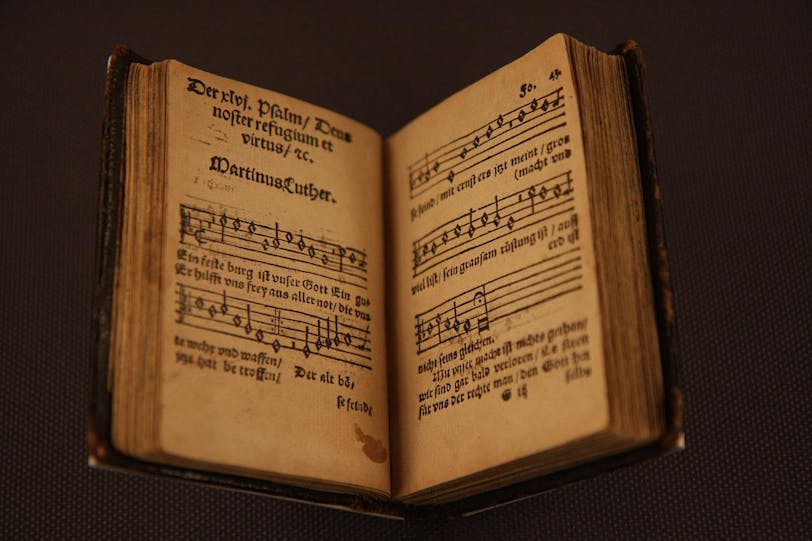 Der xlvj. Psalm/ Deus
noster refugium et
virtus/ ꝛc.
Martinus Luther.
Ein feste burg ist vnser Gott Ein gu-
Er hilfft vns frey aus aller not/ die vns
te wehr vnd waffen/
jtzt hat be troffen/ Der alt bö-
se feind/
43.
se feind/ mit ernst ers jtzt meint/ gros
(macht vnd
viel list/ sein grausam rüstung ist/ auff
erd ist
nicht seins gleichen.
Mit vnser macht ist nichts gethan/
wir sind gar bald verloren/ streit
für vns der rechte man/ den Gott
selbs
G iij